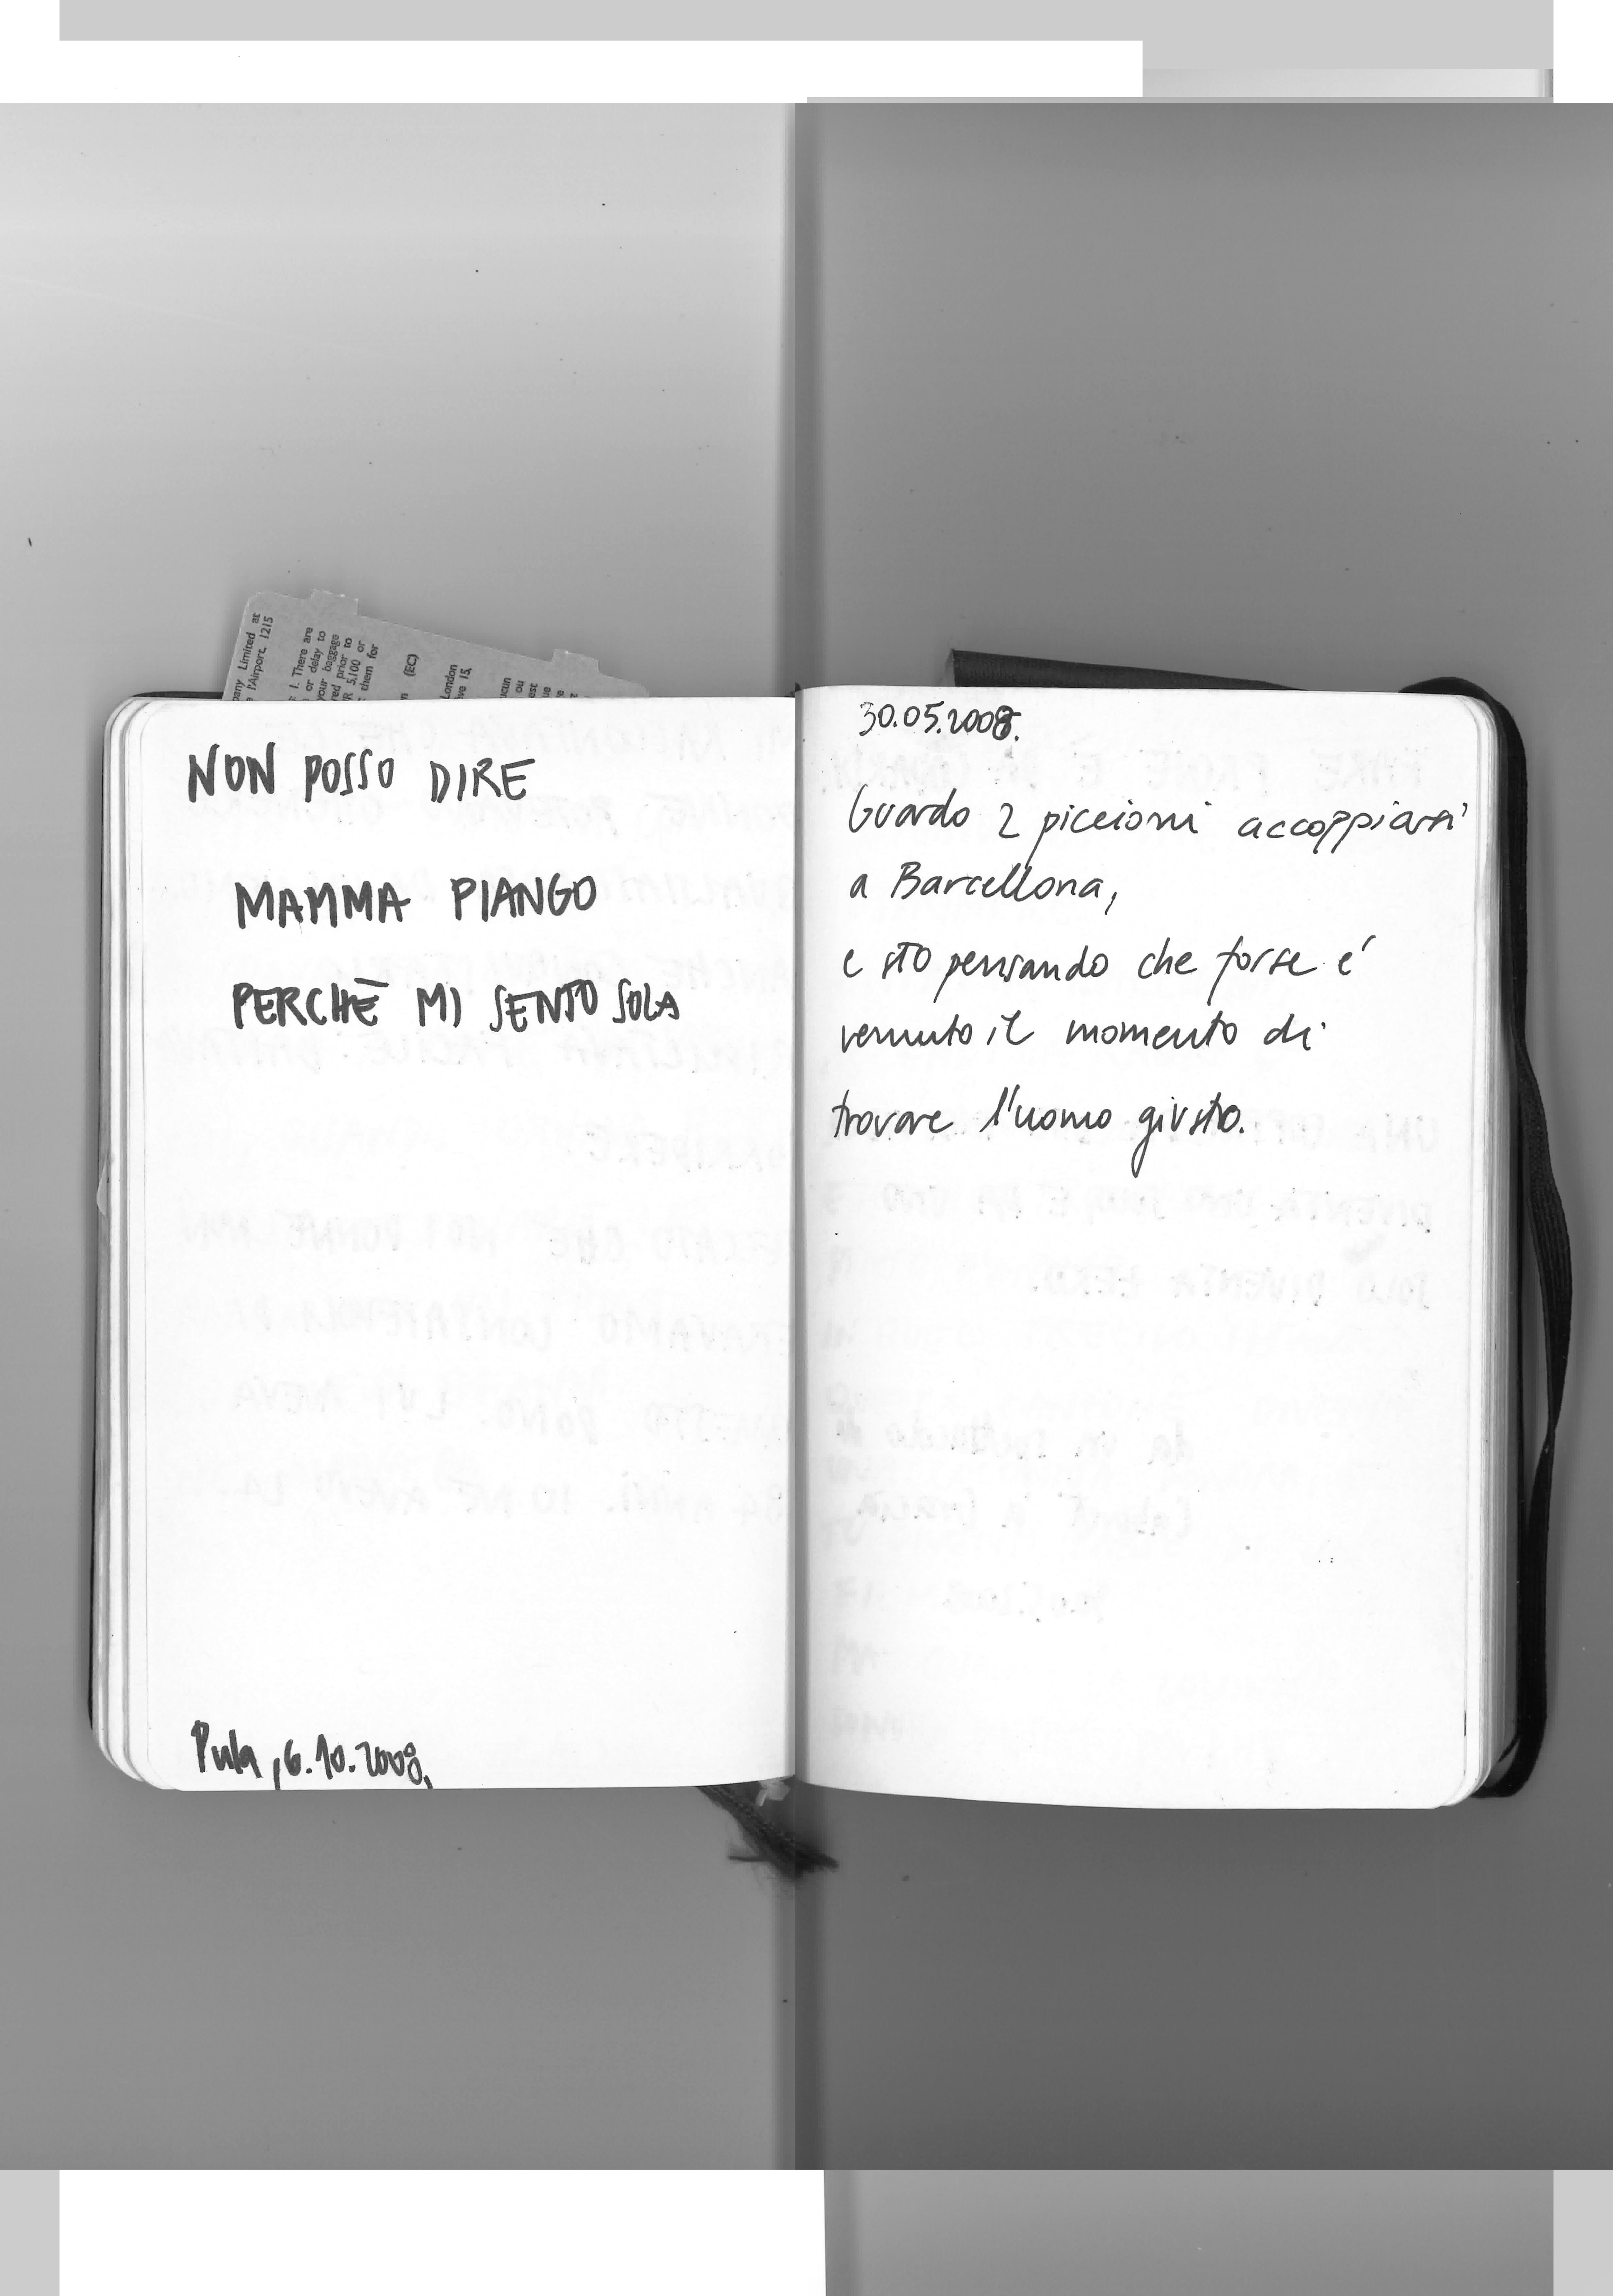 NON POSSO DIRE
MAMMA PIANGO
PERCHÈ MI SENTO SOLA
Pula, 6.10.2008,
30.05.2008.
Guardo 2 piccioni accoppiarsi
a Barcellona,
e sto pensando che forse é
venuto il momento di
trovare l'uomo giusto.
any Limited at
Airport, 1215
1. There are
or delay to
your baggage
red prior to
5,100 or
them for
(EC)
London
15,
ou
est